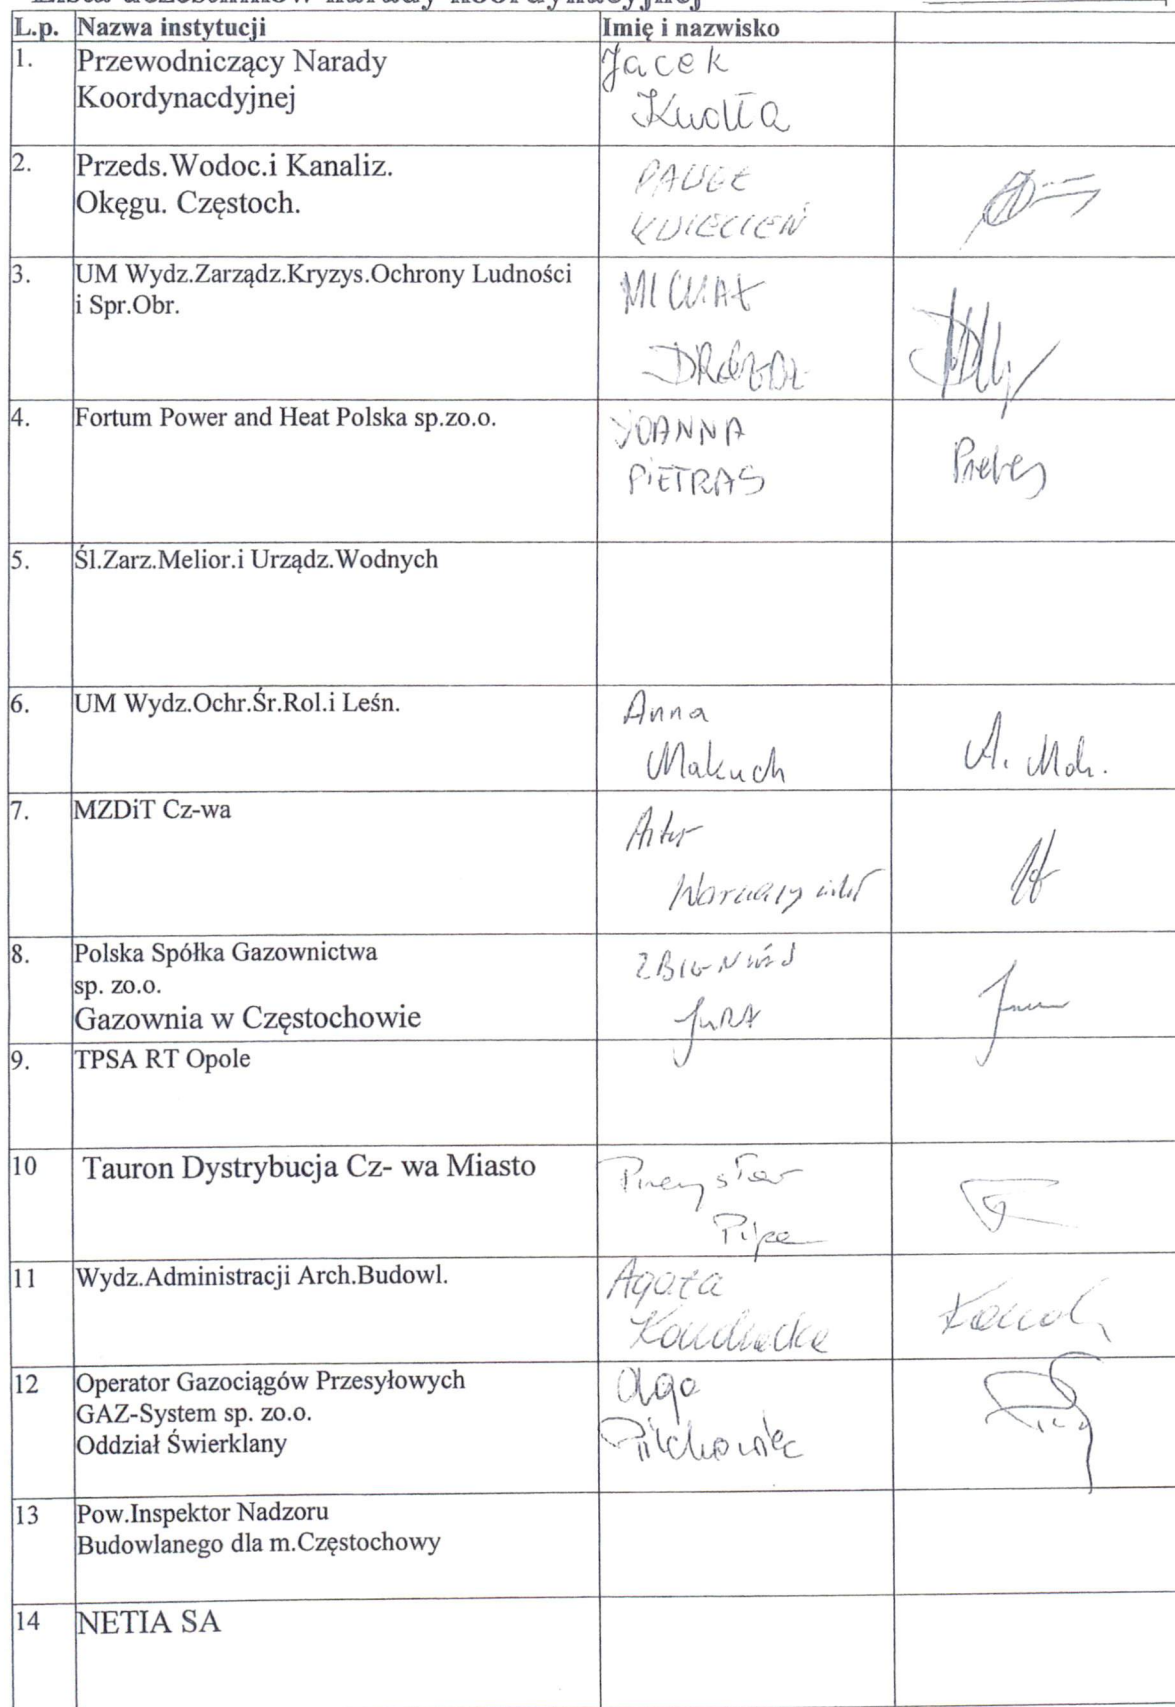 Lista uczestników narady koordynacyjnej
L.p. Nazwa instytucji Imię i nazwisko
1. Przewodniczący Narady
Koordynacdyjnej
Jacek
Kudła
2. Przeds.Wodoc.i Kanaliz.
Okęgu. Częstoch.
PAWEŁ
KWIECIEŃ
3. UM Wydz.Zarządz.Kryzys.Ochrony Ludności
i Spr.Obr.
MICHAŁ
4. Fortum Power and Heat Polska sp.zo.o.
JOANNA
PIETRAS
5. Śl.Zarz.Melior.i Urządz.Wodnych
6. UM Wydz.Ochr.Śr.Rol.i Leśn.
Anna
Makuch
7. MZDiT Cz-wa
Artur
8. Polska Spółka Gazownictwa
sp. zo.o.
Gazownia w Częstochowie
ZBIGNIEW
JURA
9. TPSA RT Opole
10 Tauron Dystrybucja Cz- wa Miasto
Przemysław
Pipa
11 Wydz.Administracji Arch.Budowl.
Agata
12 Operator Gazociągów Przesyłowych
GAZ-System sp. zo.o.
Oddział Świerklany
Olga
Pilchowiec
13 Pow.Inspektor Nadzoru
Budowlanego dla m.Częstochowy
14 NETIA SA